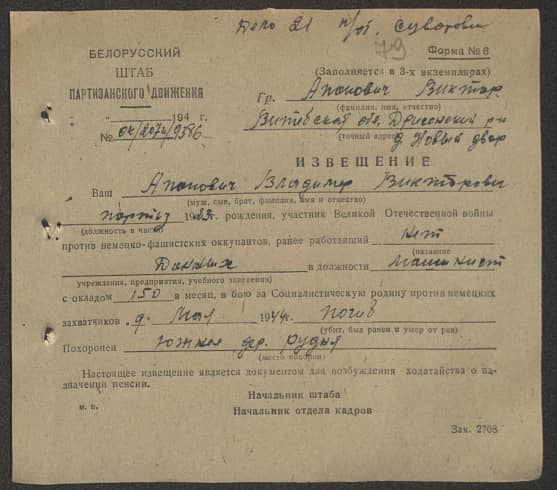 Дело 21 п/от. Суворова
79
БЕЛОРУССКИЙ
ШТАБ
ПАРТИЗАНСКОГО ДВИЖЕНИЯ
Форма № 6
(Заполняется в 3-х экземплярах)
Гр. Апонович Виктор
(фамилия, имя, отчество)
" " 194 г.
№ ок/2072/9586
Витебская обл. Дрисенский р-н
(точный адрес)
д. Новый двор
ИЗВЕЩЕНИЕ
Ваш Апонович Владимир Викторович
(муж, сын, брат, фамилия, имя и отчество)
19 г. рождения, участник Великой Отечественной войны
(должность в части)
против немецко-фашистских оккупантов, ранее работавший нет
(название
данных в должности Машинист
учреждения, предприятия, учебного заведения)
с окладом 150 в месяц, в бою за Социалистическую родину против немецких
захватчиков " Мая 1944 г. погиб
(убит, был ранен и умер от ран)
Похоронен Южнее дер. Рудня
(место похорон)
Настоящее извещение является документом для возбуждения ходатайства о на-
значении пенсии.
Начальник штаба
м. п.
Начальник отдела кадров
Зак. 2708